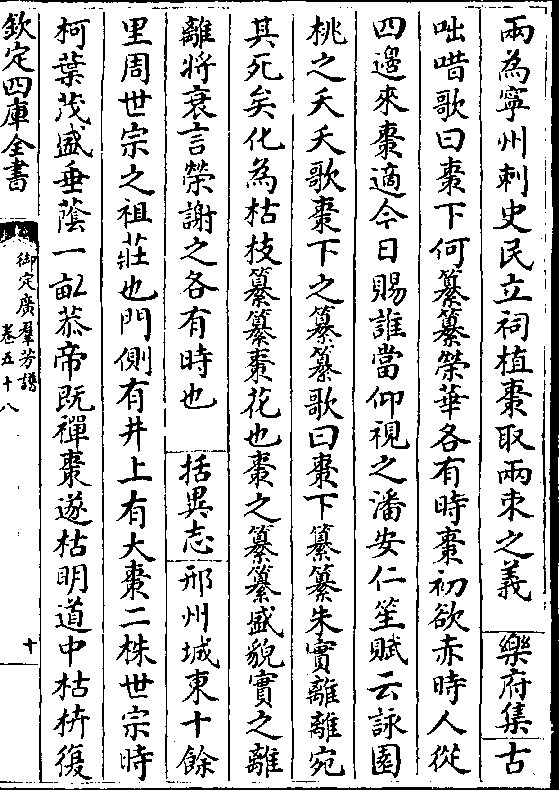 兩為寧州刺史民立祠植棗取兩朿之義　樂府集　古
咄唶歌曰棗下何纂纂榮華各有時棗初欲赤時人從
四邊來棗適今日賜誰當仰視之潘安仁笙賦云詠園
桃之夭夭歌棗下之纂纂歌曰棗下纂纂朱實離離宛
其死矣化為枯枝纂纂棗花也棗之纂纂盛貌實之離
離將衰言榮謝之各有時也　括異志　邢州城東十餘
里周世宗之祖莊也門側有井上有大棗二株世宗時
柯葉茂盛垂蔭一畝恭帝既禪棗遂枯明道中枯枿復
欽定四庫全書
御定廣羣芳譜
卷五十八
十